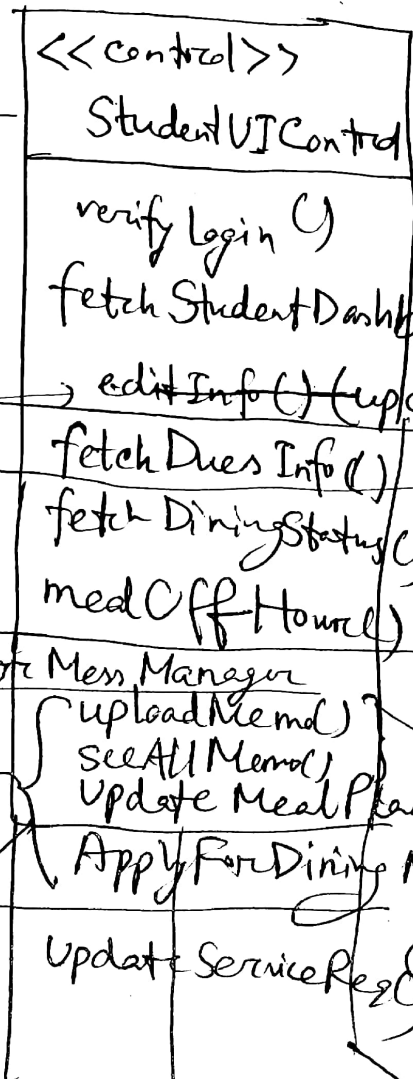 <<control>>
StudentUIControl
verifyLogin()
fetchStudentDashb
editInfo() (upd
fetchDuesInfo()
fetchDiningStatus(
mealOffHour()
or Mess Manager
uploadMemo()
seeAllMemo()
Update MealPla
ApplyForDining M
UpdateServiceReq(